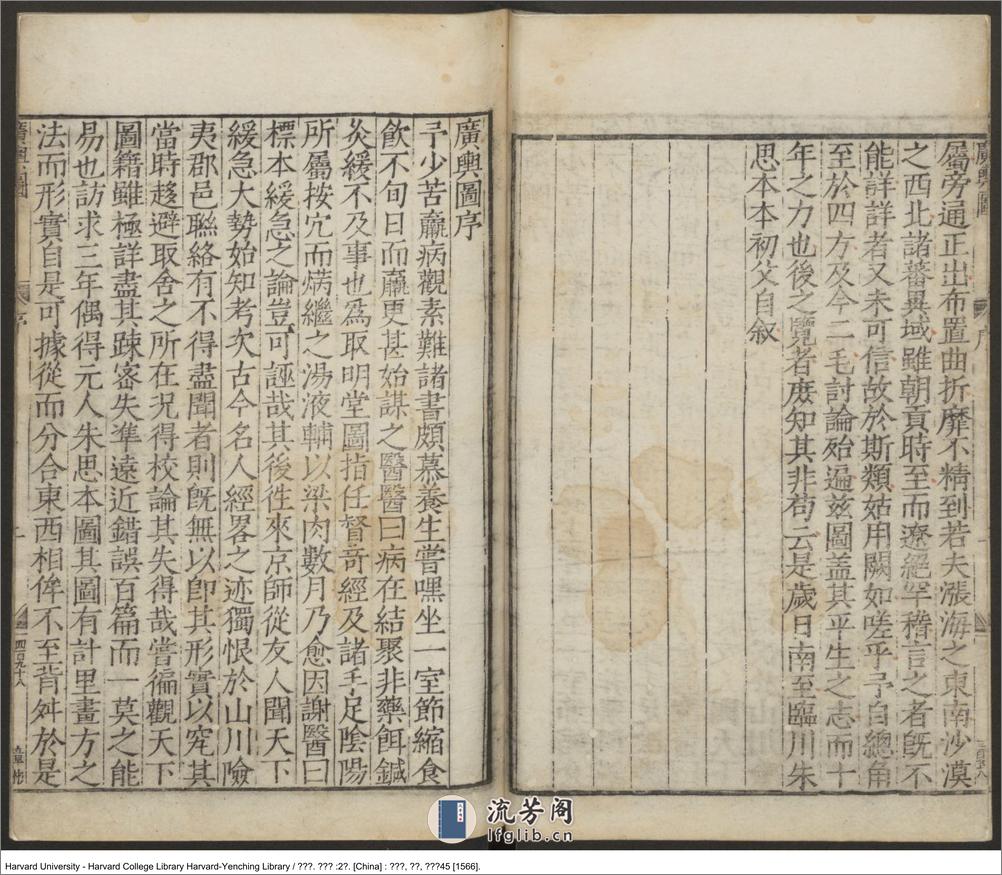 廣輿圖
序
屬旁通正出布置曲折靡不精到若夫漲海之東南沙漠
之西北諸蕃異域雖朝貢時至而遼絕罕稽言之者旣不
能詳詳者又未可信故於斯類姑用闕如嗟乎予自總角
至於四方及今二毛討論殆遍兹圖盖其平生之志而十
年之力也後之覽者庻知其非苟云是歲日南至臨川朱
思本本初父自叙
廣輿圖序
予少苦羸病觀素難諸書頗慕養生嘗嘿坐一室節縮食
飲不旬日而羸更甚始謀之醫醫曰病在結聚非藥餌鍼
灸緩不及事也爲取明堂圖指任督竒經及諸手足陰陽
所屬按穴而焫繼之湯液輔以梁肉數月乃愈因謝醫曰
標本緩急之論豈可誣哉其後徃來京師從友人聞天下
緩急大勢始知考次古今名人經畧之迹獨恨於山川險
夷郡邑聮絡有不得盡聞者則旣無以卽其形實以究其
當時趍避取舍之所在况得校論其失得哉嘗徧觀天下
圖籍雖極詳盡其踈密失準遠近錯誤百篇而一莫之能
易也訪求三年偶得元人朱思本圖其圖有計里畫方之
法而形實自是可據從而分合東西相侔不至背舛於是
廣輿圖
序
一
四百九十八
流芳阁
lfglib.cn
Harvard University - Harvard College Library Harvard-Yenching Library / ???. ??? :2?. [China] : ???, ??, ???45 [1566].